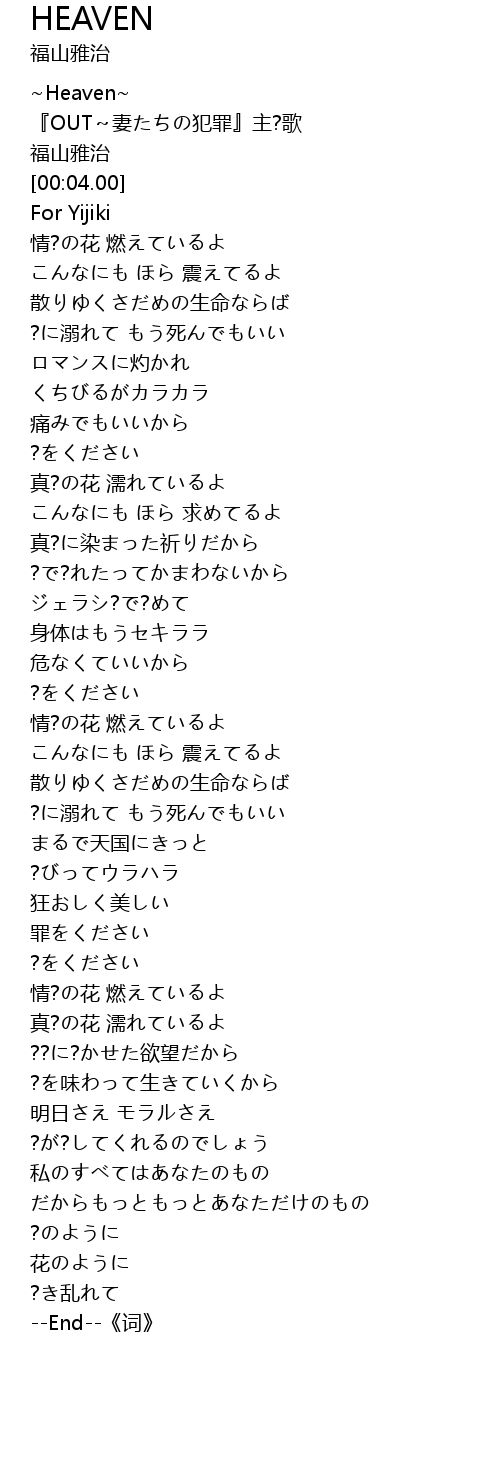 HEAVEN
福山雅治
~Heaven~
『OUT～妻たちの犯罪』主?歌
福山雅治
[00:04.00]
For Yijiki
情?の花 燃えているよ
こんなにも ほら 震えてるよ
散りゆくさだめの生命ならば
?に溺れて もう死んでもいい
ロマンスに灼かれ
くちびるがカラカラ
痛みでもいいから
?をください
真?の花 濡れているよ
こんなにも ほら 求めてるよ
真?に染まった祈りだから
?で?れたってかまわないから
ジェラシ?で?めて
身体はもうセキララ
危なくていいから
?をください
情?の花 燃えているよ
こんなにも ほら 震えてるよ
散りゆくさだめの生命ならば
?に溺れて もう死んでもいい
まるで天国にきっと
?びってウラハラ
狂おしく美しい
罪をください
?をください
情?の花 燃えているよ
真?の花 濡れているよ
??に?かせた欲望だから
?を味わって生きていくから
明日さえ モラルさえ
?が?してくれるのでしょう
私のすべてはあなたのもの
だからもっともっとあなただけのもの
?のように
花のように
?き乱れて
--End--《词》